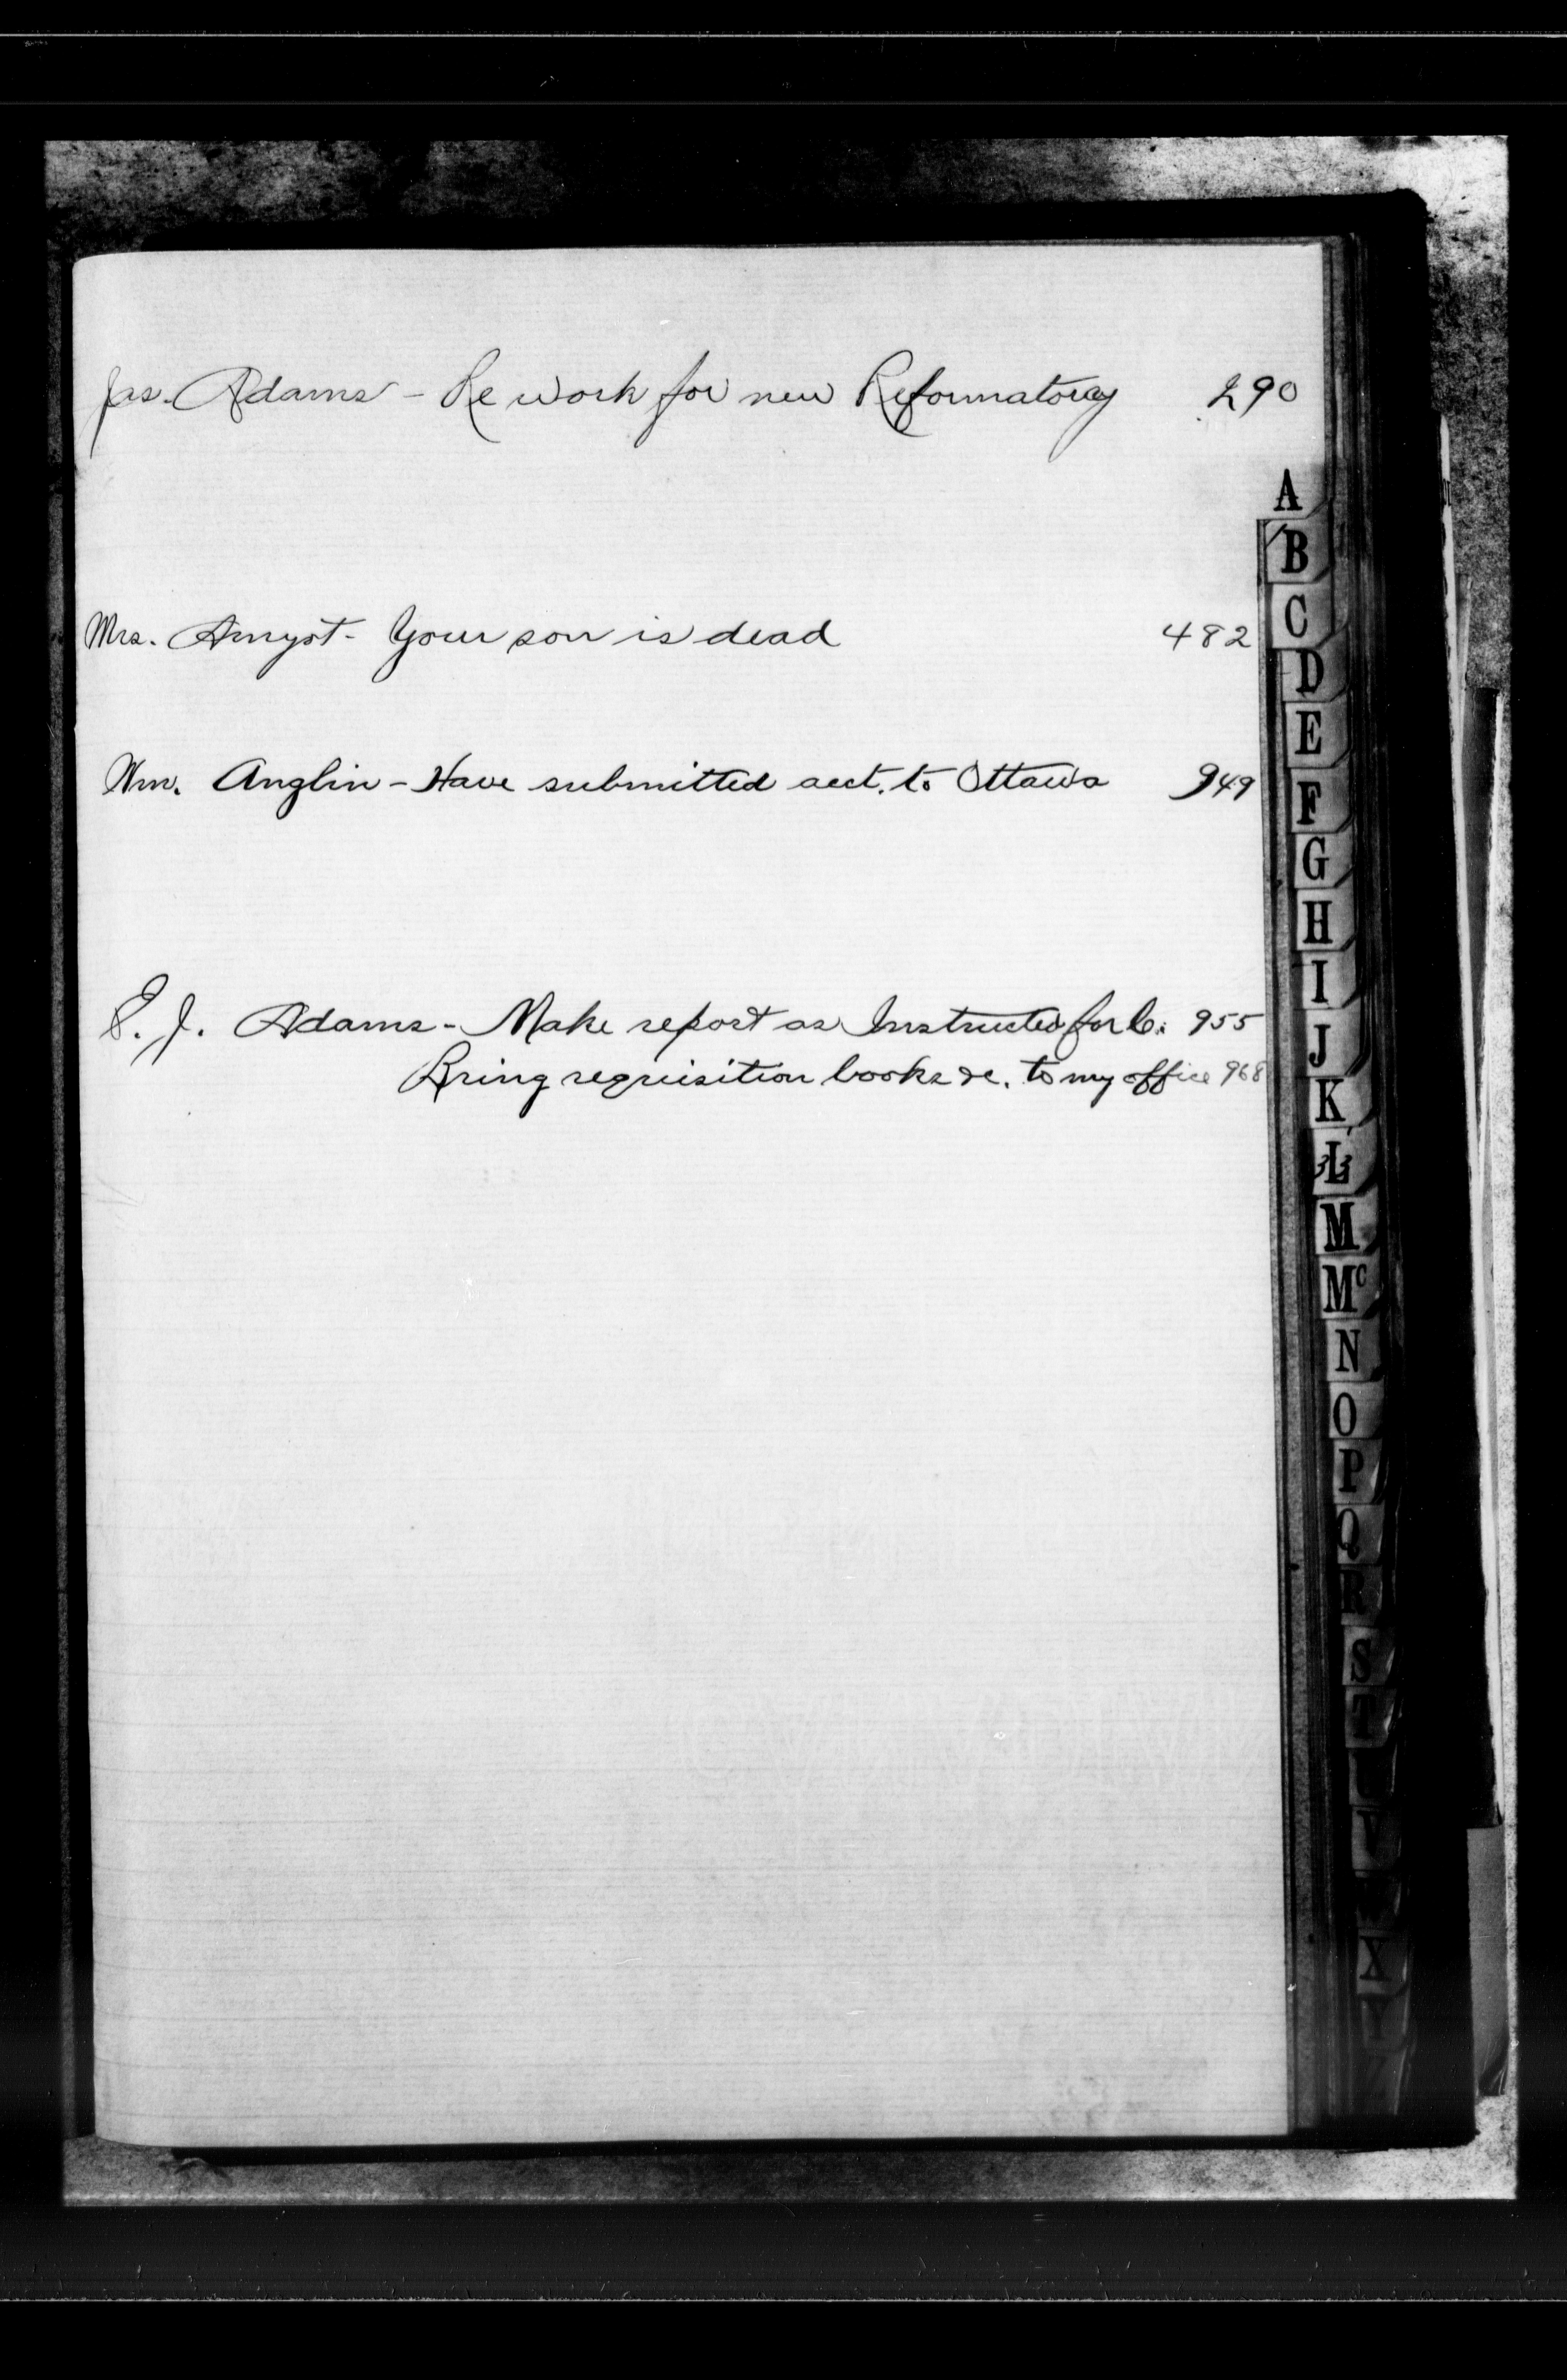 Jas. Adams - Re work for new Reformatory 290
Mrs. Amyot - Your son is dead 482
Wm. Anglin - Have submitted acct. to Ottawa 949
J. Adams - Make report as Instructed for 955
Bring requisition books &c. to my office 968
A
B
C
D
E
F
G
H
I
J
K
L
M
Mc
N
O
P
Q
R
S
T
U
V
X
Y